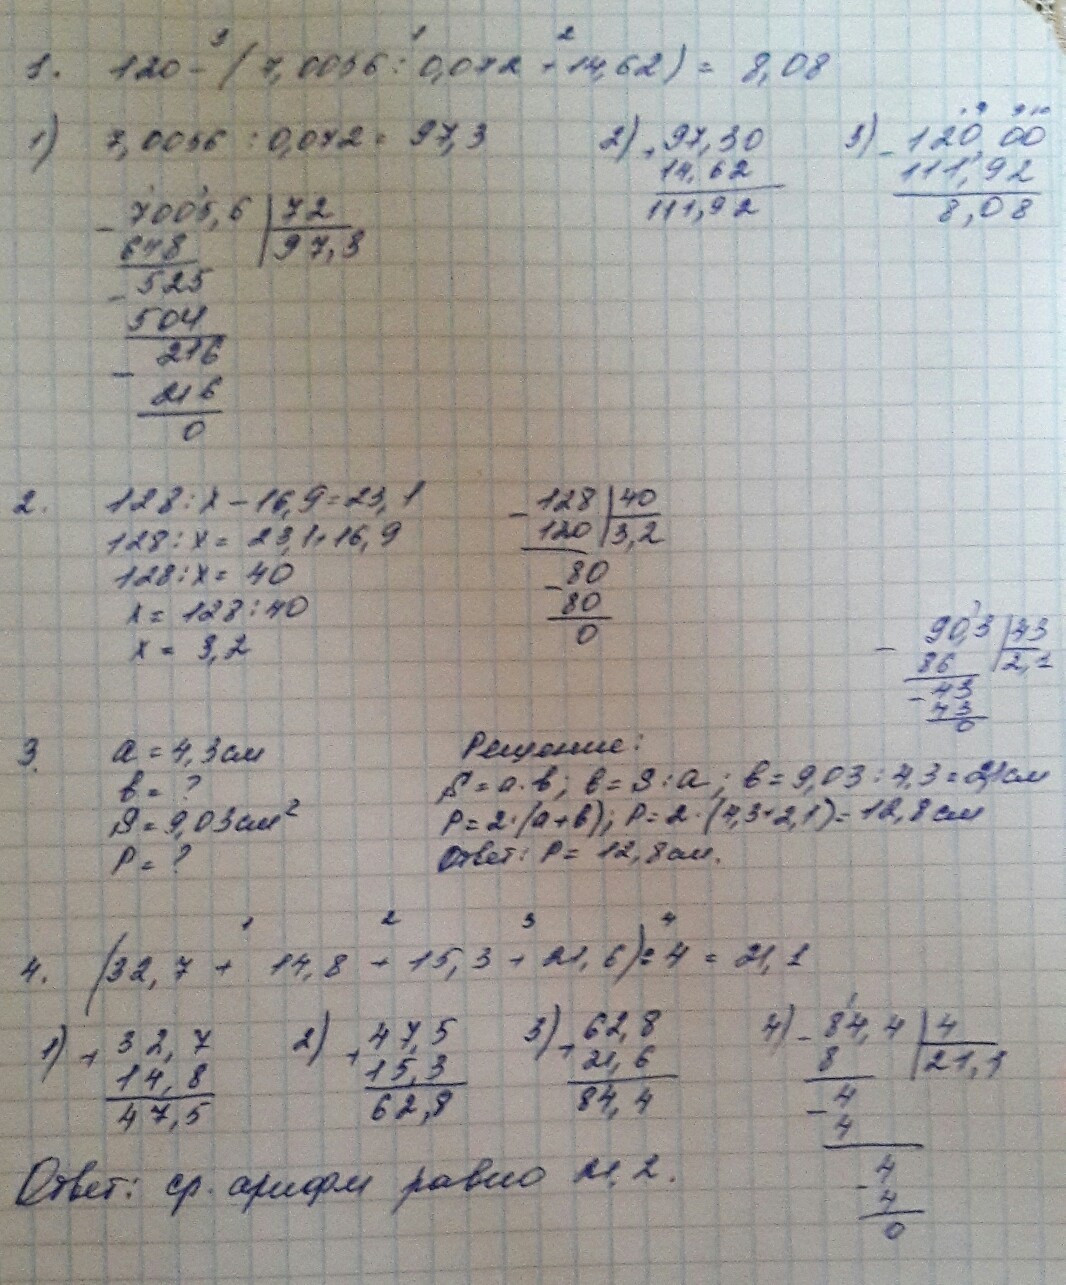 3 1 2
1. 120 - (7,0056 : 0,072 + 14,62) = 8,08
1) 7,0056 : 0,072 = 97,3
- 7005,6 | 72
648 | 97,3
- 525
504
- 216
216
0
2) + 97,30
14,62
111,92
3) - 120,00
111,92
8,08
2. 128 : x - 16,9 = 23,1
128 : x = 23,1 + 16,9
128 : x = 40
x = 128 : 40
x = 3,2
- 128 | 40
120 | 3,2
- 80
80
0
- 90,3 | 43
86 | 2,1
- 43
43
0
3. a = 4,3 см
b = ?
S = 9,03 см²
P = ?
Решение:
S = a · b; b = S : a; b = 9,03 : 4,3 = 2,1 см
P = 2 · (a + b); P = 2 · (4,3 + 2,1) = 12,8 см
Ответ: P = 12,8 см.
1 2 3 4
4. (32,7 + 14,8 + 15,3 + 21,6) : 4 = 21,1
1) + 32,7
14,8
47,5
2) + 47,5
15,3
62,8
3) + 62,8
21,6
84,4
4) - 84,4 | 4
8 | 21,1
- 4
4
- 4
4
0
Ответ: ср. арифм равно 21,2.